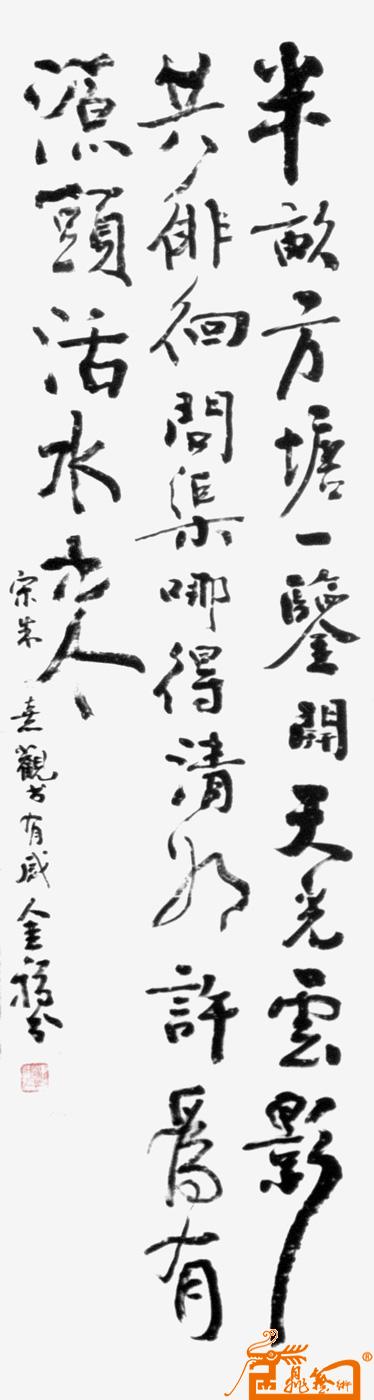 半畝方塘一鑒開天光雲影
共徘徊問渠哪得清如許爲有
源頭活水來
宋朱熹觀書有感金福